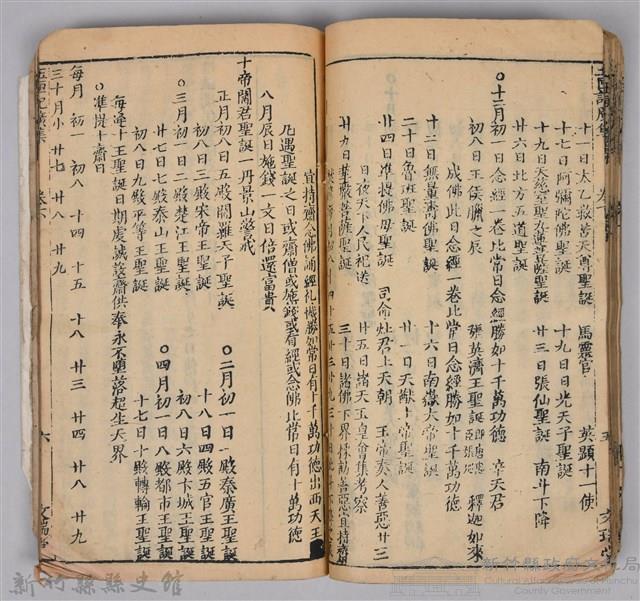 十一日太乙救苦天尊聖誕 馬靈官 英顯十一使
十七日阿彌陀佛聖誕 十九日日光天子聖誕
廿三日張仙聖誕 南斗下降
廿六日北方五道聖誕
○十二月初一日念經一卷比常日念經勝如十千萬功德
初八日王侯臘之辰 張英濟王聖誕 釋迦如來
成佛此日念經一卷比常日念經勝如十千萬功德
十六日南嶽大帝聖誕
二十日魯班聖誕 廿一日天猷上帝聖誕
廿四日準提佛母聖誕 司命灶君上天朝 玉帝奏人善惡廿三
日夜天下人民祀送 廿五日諸天玉皇會集考察
廿九日華嚴菩薩聖誕 三十日諸佛下界採訪善惡
宜持齋念佛誦經礼懺勝如常日有十千萬功德出西天王
凡遇聖誕之日或齋僧或施錢或看經或念佛比常日有十萬功德
八月辰日施錢一文日倍還富貴
十帝閻君聖誕
正月初八日五殿閻羅天子聖誕 ○二月初一日一殿秦廣王聖誕
初八日三殿宋帝王聖誕 十八日四殿五官王聖誕
○三月初一日二殿楚江王聖誕 初八日六殿卞城王聖誕
廿七日七殿泰山王聖誕 ○四月初一日八殿都市王聖誕
初八日九殿平等王聖誕 十七日十殿轉輪王聖誕
每逢十王聖誕日期虔誠設齋供奉永不墮落超生天界
○準提十齋日
每月 初一 初八 十四 十五 十八 廿三 廿四 廿八 廿九
三十月小 廿七 廿八 廿九
六
新竹縣縣史館
新竹縣政府文化局
Cultural Affairs Bureau of Hsinchu
County Government